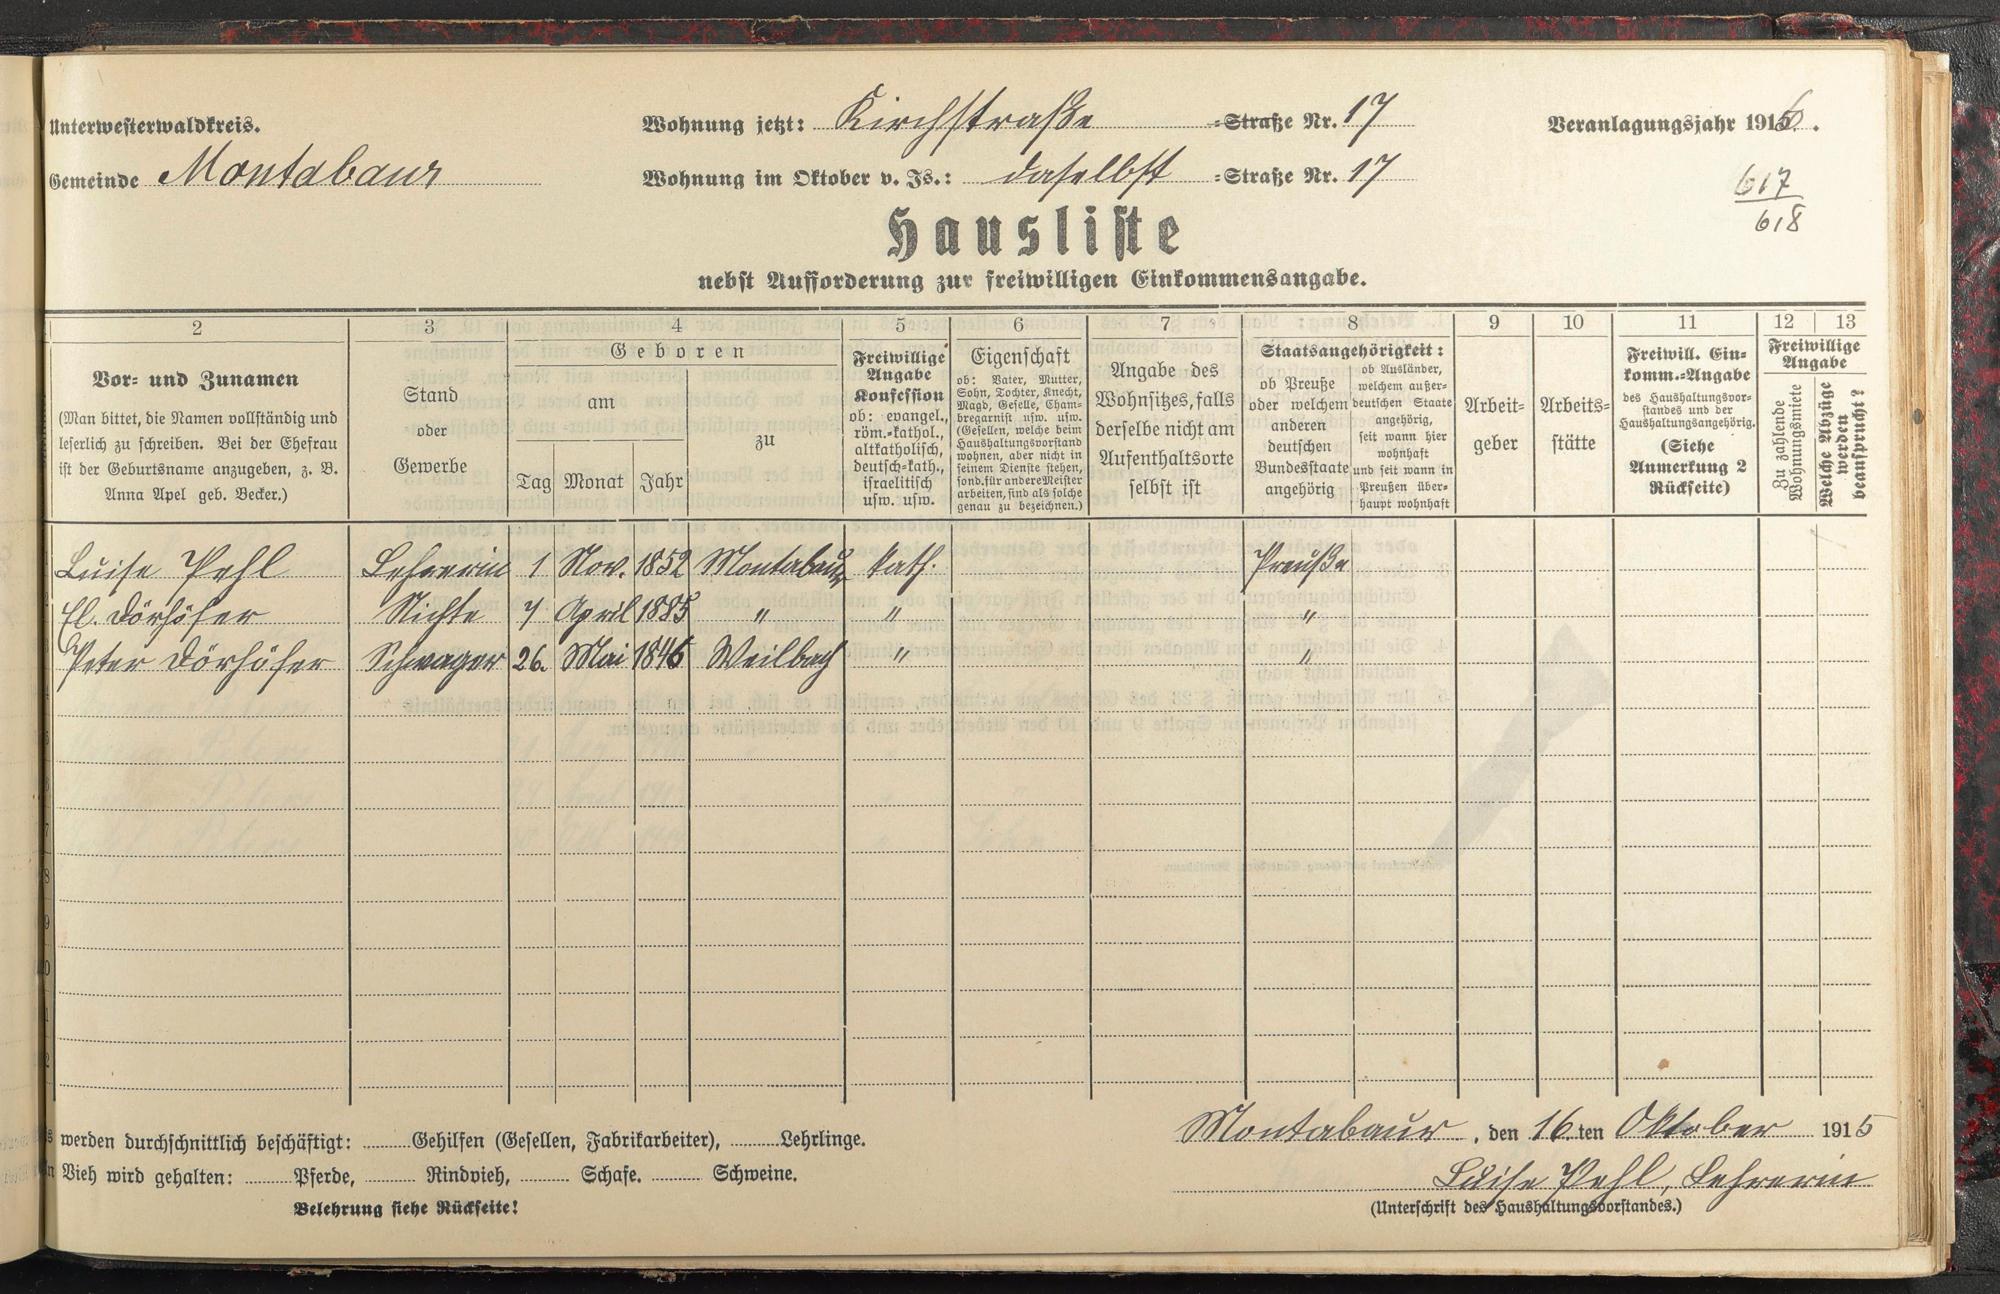 Unterwesterwaldkreis.
Gemeinde Montabaur
Wohnung jetzt: Kirchstraße =Straße Nr. 17
Wohnung im Oktober v. Js.: daselbst =Straße Nr. 17
Veranlagungsjahr 1916.
617
618
Hausliste
nebst Aufforderung zur freiwilligen Einkommensangabe.
2
Vor= und Zunamen
(Man bittet, die Namen vollständig und
leserlich zu schreiben. Bei der Ehefrau
ist der Geburtsname anzugeben, z. B.
Anna Apel geb. Becker.)
3
Stand
oder
Gewerbe
4
Geboren
am
Tag Monat Jahr
zu
5
Freiwillige
Angabe
Konfession
ob: evangel.,
röm.=kathol.,
altkatholisch,
deutsch=kath.,
israelitisch
usw. usw.
6
Eigenschaft
ob: Vater, Mutter,
Sohn, Tochter, Knecht,
Magd, Geselle, Cham=
bregarnist usw. usw.
(Gesellen, welche beim
Haushaltungsvorstand
wohnen, aber nicht in
seinem Dienste stehen,
sond. für andere Meister
arbeiten, sind als solche
genau zu bezeichnen.)
7
Angabe des
Wohnsitzes, falls
derselbe nicht am
Aufenthaltsorte
selbst ist
8
Staatsangehörigkeit:
ob Preuße
oder welchem
anderen
deutschen
Bundesstaate
angehörig
ob Ausländer,
welchem außer=
deutschen Staate
angehörig,
seit wann hier
wohnhaft
und seit wann in
Preußen über=
haupt wohnhaft
9
Arbeit=
geber
10
Arbeits=
stätte
11
Freiwill. Ein=
komm.=Angabe
des Haushaltungsvor=
standes und der
Haushaltungsangehörig.
(Siehe
Anmerkung 2
Rückseite)
12 13
Freiwillige
Angabe
Zu zahlende
Wohnungsmiete
Welche Abzüge
werden
beansprucht?
Luise Pehl Lehrerin 1 Nov. 1852 Montabaur kath. Preuße
El. Dörhöfer Nichte 7 April 1885 " " "
Peter Dörhöfer Schwager 26. Mai 1846 Weilbach " "
werden durchschnittlich beschäftigt: Gehilfen (Gesellen, Fabrikarbeiter), Lehrlinge.
Vieh wird gehalten: Pferde, Rindvieh, Schafe. Schweine.
Belehrung siehe Rückseite!
Montabaur, den 16 ten Oktober 1915
Luise Pehl, Lehrerin
(Unterschrift des Haushaltungsvorstandes.)